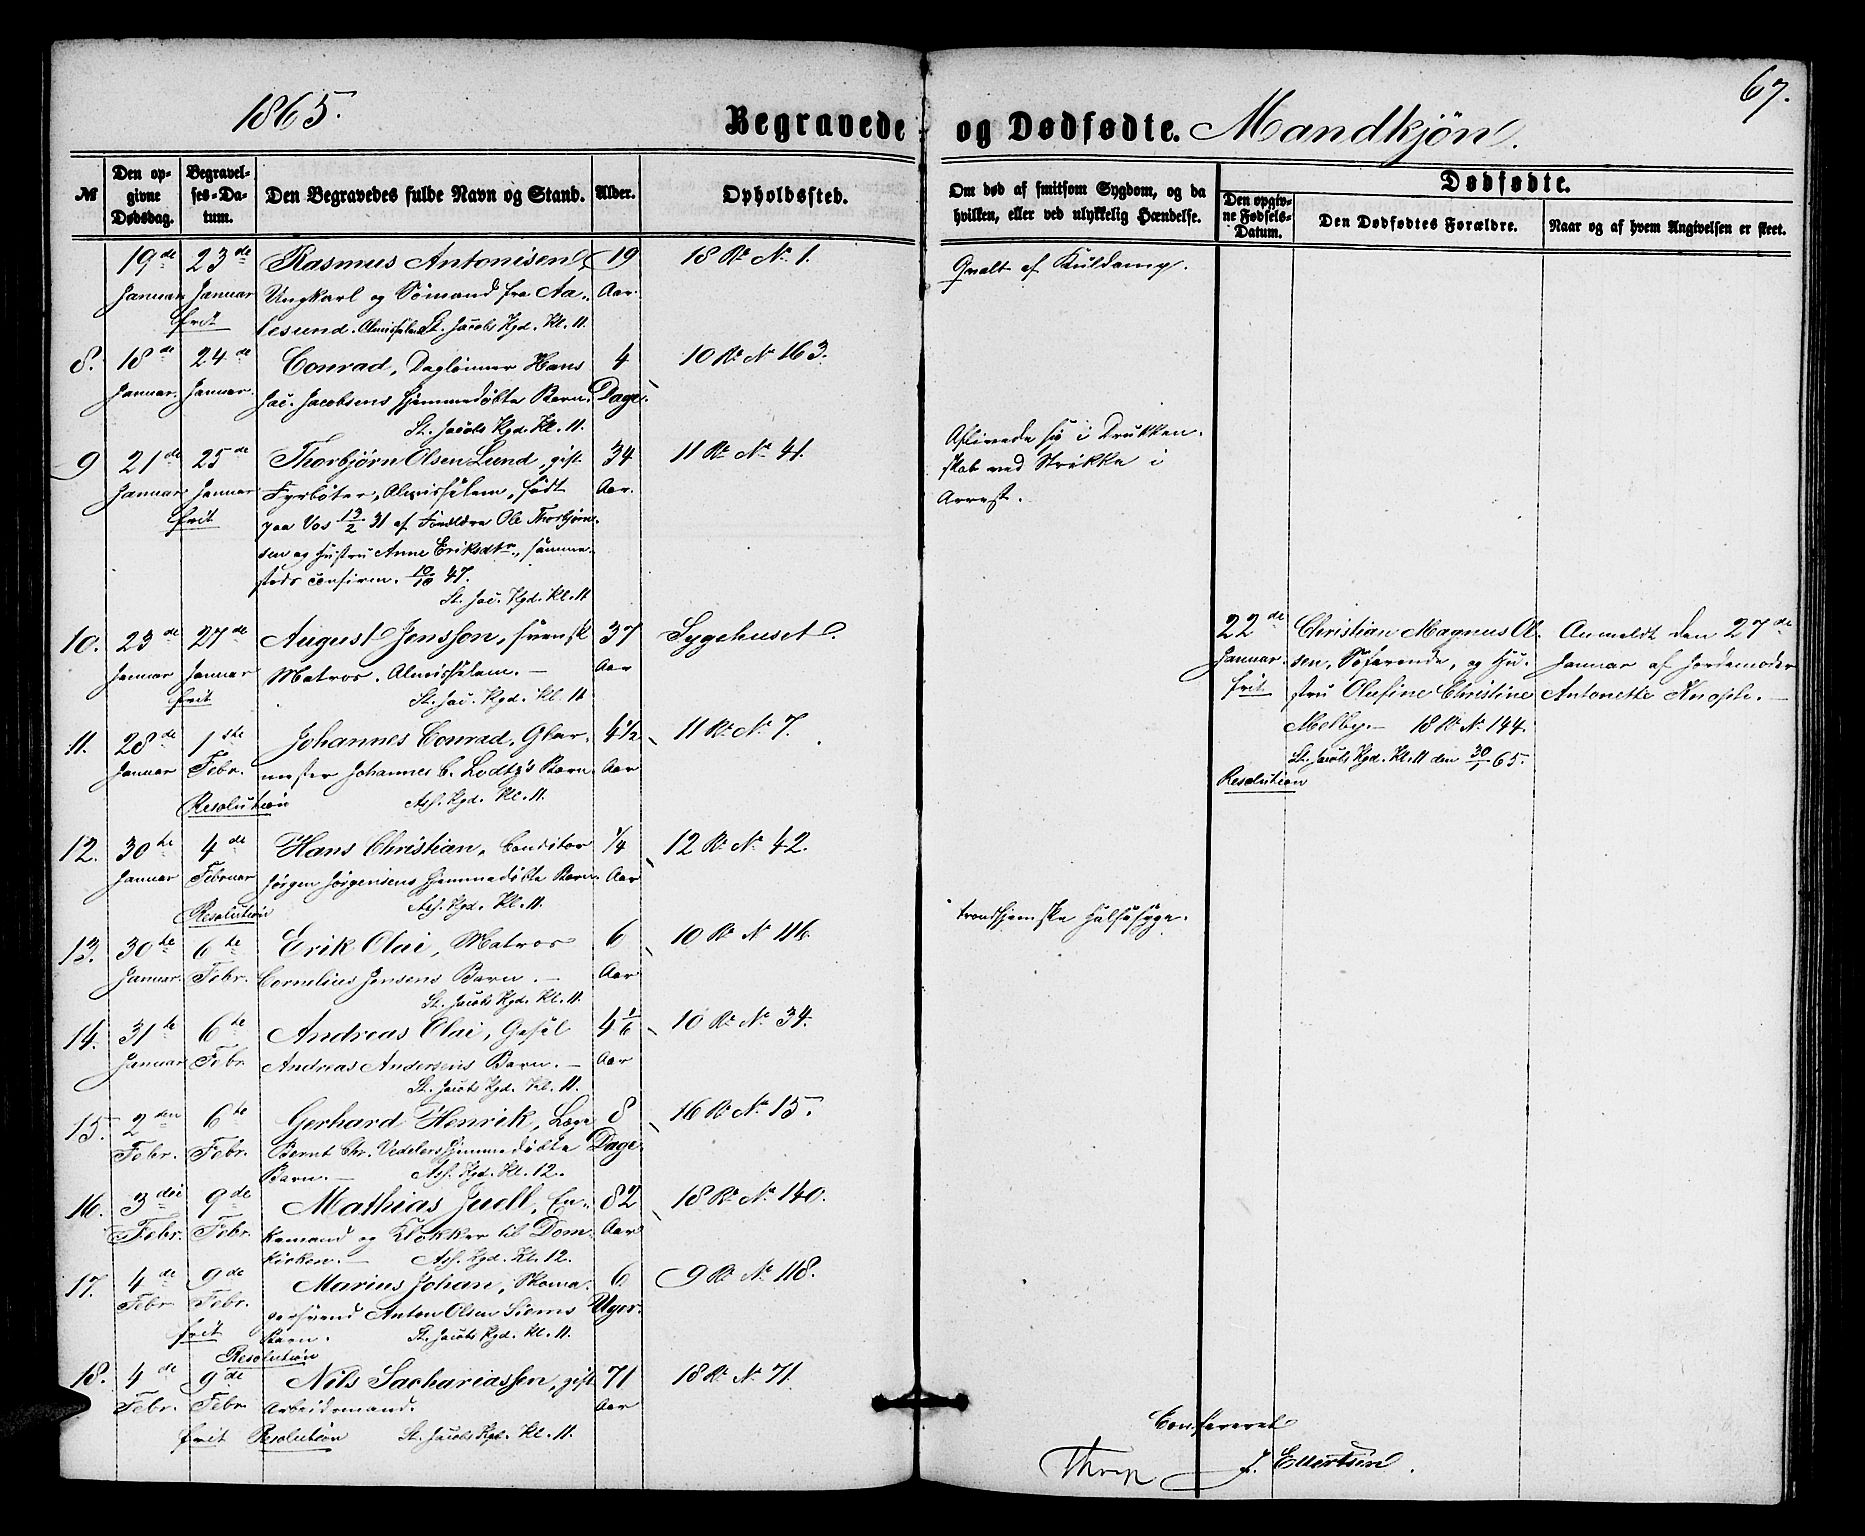 1865.
67.
Begravede og Dødfødte. Mandkjøn.
№
Den opgivne Dødsdag.
Begravelses-Datum.
Den Begravedes fulde Navn og Stand.
Alder.
Opholdssted.
Om død af smitsom Sygdom, og da hvilken, eller ved ulykkelig Hændelse.
Dødfødte.
Den opgivne Fødsels-Datum.
Den Dødfødtes Forældre.
Naar og af hvem Angivelsen er skeet.
19de 23de Rasmus Antonisen, 19 18 R. No 1. Qvalt af Kuldamp.
Januar Januar Ungkarl og Sømand fra Aa- Aar.
frit lesund. Almisselem St. Jacobs Kgd. Kl. 11.
8. 18de 24de Conrad, Dagleiner Hans 4 10 R. No 163.
Januar. Januar. Jac. Jacobsens hjemmedøbte Barn. Dage.
St. Jacobs Kgd. Kl. 11.
9 21de 25de Thorbjørn Olsen Lund, gift 34 11 R. No 41. Aflivede sig i Drukken-
Januar Januar Fyrbøter, Almisselem, født Aar. skab ved Strikke i
frit paa Vos 13/2 31 af Forældre Ole Thorbjørn- Arrest.
sen og Hustru Anne Eriksdtr., samme-
steds confirm. 10/10 47.
St. Jac. Kgd. Kl. 11
10. 23de 27de August Jonsson, svensk 37 Sygehuset. 22de Christian Magnus Ol- Anmeldt den 27de
Januar Januar Matros. Almisselem. — Aar Januar. sen, Søfarende, og Hu- Januar af Jordemoder
frit St. Jac. Kgd. Kl. 11 frit stru Olufine Christine Antonette Knophe. —
11. 28de 1ste Johannes Conrad, Glar- 4 1/2 11 R. No 7. Melby. — 18 R. No 144.
Januar Febr. mester Johannes C. Lodtz's Barn. Aar St. Jacobs Kgd. Kl. 11 den 30/1 65.
Resolution Ass. Kgd. Kl. 11. Resolution
12. 30te 4de Hans Christian, Conditor 1/4 12 R. No 42.
Januar Februar Jørgen Jørgensens hjemmedøbte Barn. Aar
Resolution Ass. Kgd. Kl. 11.
13. 30te 6te Erik Olai, Matros 6 10 R. No 116. trondhjemske Halssyge.
Januar. Febr. Cornelius Jensens Barn. — Aar
St. Jacobs Kgd. Kl. 11.
14. 31te 6te Andreas Olai, Gesel 4 1/6 10 R. No 34.
Januar Febr. Andreas Andersens Barn. — Aar
St. Jacobs Kgd. Kl. 11.
15. 2den 6te Gerhard Henrik, Læge 8 16 R. No 15.
Febr. Febr. Bernt Chr. Vedelers hjemmedøbte Dage.
Barn. — Ass. Kgd. Kl. 12.
16. 3die 9de Mathias Juell, En- 82 18 R. No 140.
Febr. Febr. kemand og Klokker til Dom- Aar
kirken. — Ass. Kgd. Kl. 12.
17. 4de 9de Marius Johan, Skoma- 6 9 R. No 118.
Febr. Febr. gersvend Anton Olsen Siems Uger.
frit Barn. St. Jacobs Kgd. Kl. 11.
Resolution
18. 4de 9de Nils Sachariassen, gift 71 18 R. No 71.
Febr. Febr. Arbeidsmand. Aar
frit Resolution St. Jacobs Kgd. Kl. 11.
Confereret
J. Ellertsen